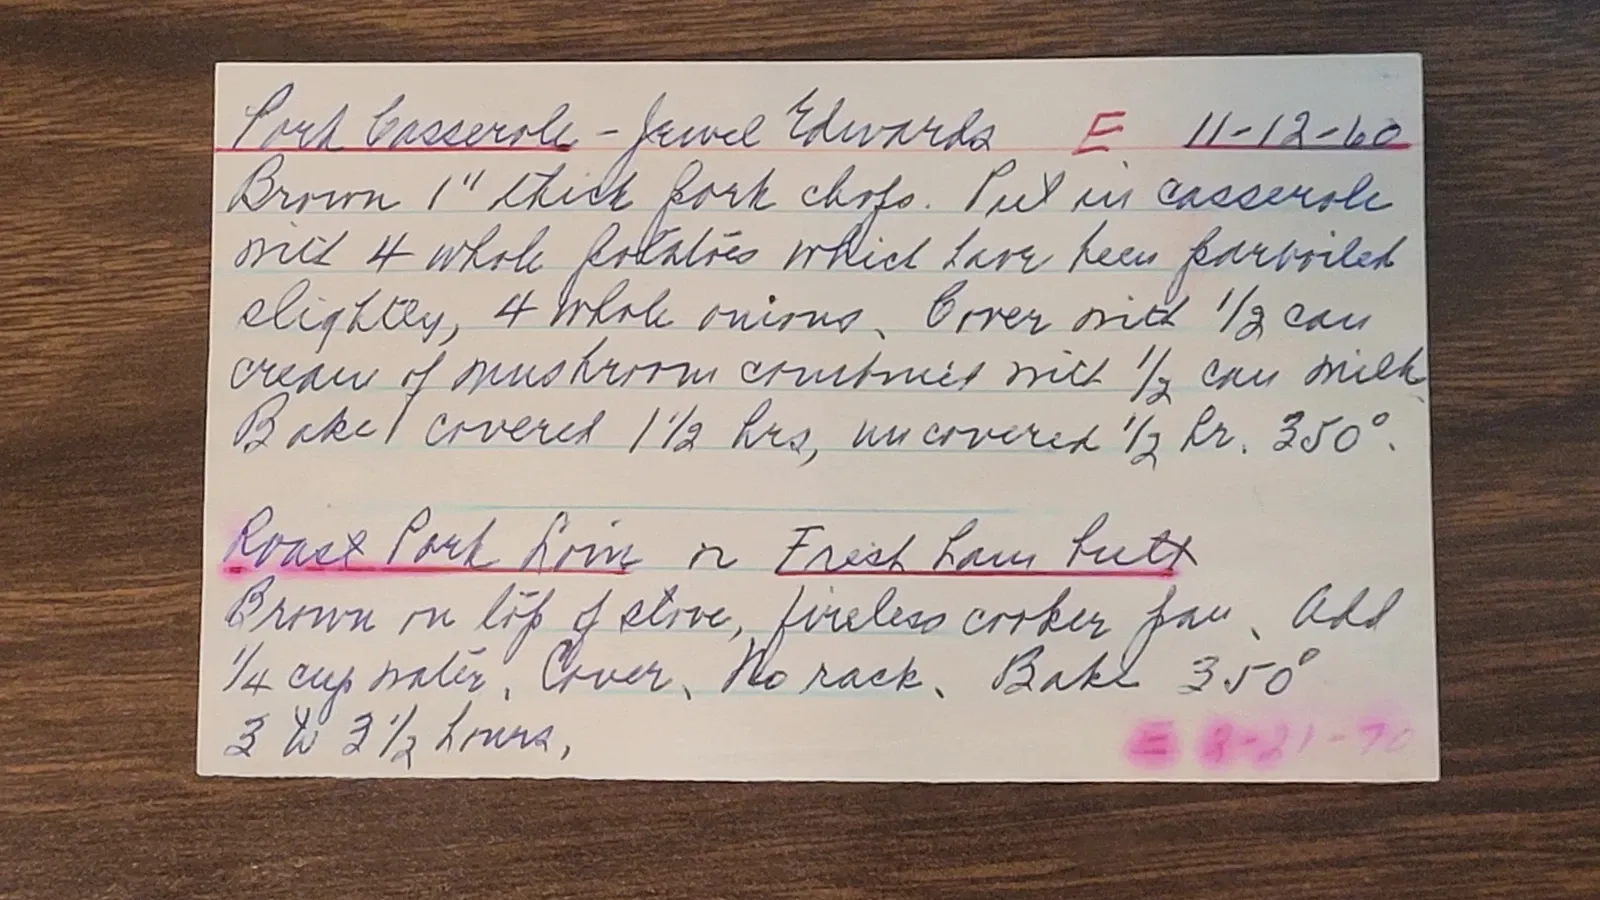 Pork Casserole - Jewel Edwards E 11-12-60
Brown 1" thick pork chops. Put in casserole
with 4 whole potatoes which have been parboiled
slightly, 4 whole onions. Cover with 1/2 can
cream of mushroom combined with 1/2 can milk.
Bake covered 1 1/2 hrs, uncovered 1/2 hr. 350°.
Roast Pork Loin or Fresh ham butt
Brown on top of stove, fireless cooker pan. Add
1/4 cup water. Cover. No rack. Bake 350°
3 to 3 1/2 hours.
E